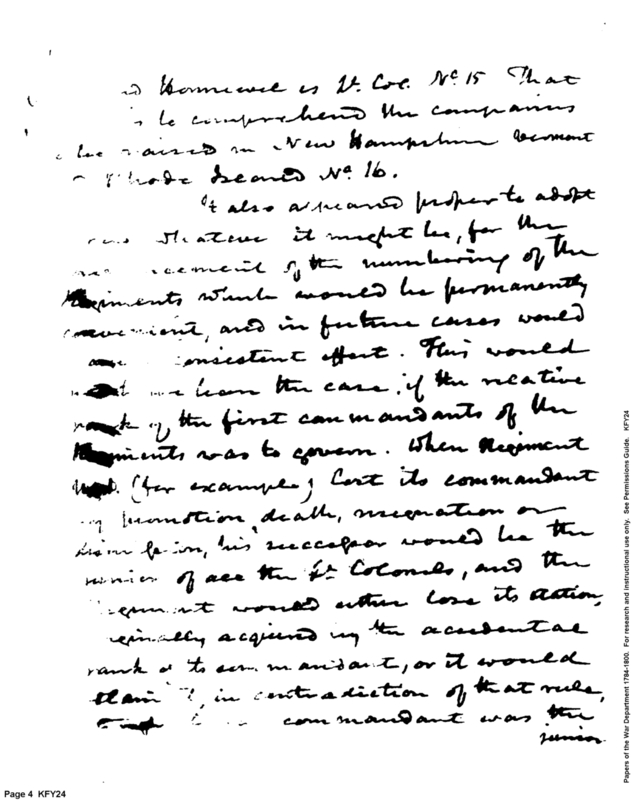 Hunnewell is Lt. Col. Nº 15 That
to comprehend the companies
to be raised in New Hampshire Vermont
Rhode Island Nº 16.
It also appeared proper to adopt
rule whatever it might be, for the
of the numbering of the
Regiments which would be permanently
convenient, and in future cases would
consistent effect. This would
not have been the case, if the relative
rank of the first commandants of the
Regiments was to govern. When Regiment
(for example) lost its commandant
by promotion, death, resignation or
his successor would be the
junior of all the Lt Colonels, and the
Regiment would either lose its station,
originally acquired by the accidental
rank of its commandant, or it would
retain it, in contradiction of that rule,
commandant was the
junior
Page 4 KFY24
Papers of the War Department 1784-1800. For research and instructional use only. See Permissions Guide. KFY24